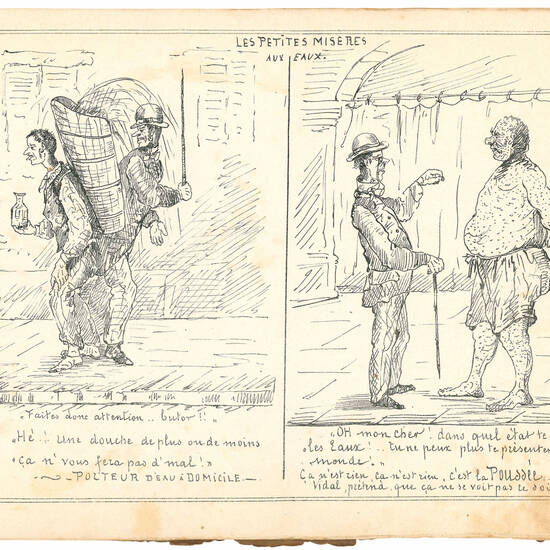 LES PETITES MISÈRES
AUX EAUX.
"Faites donc attention.. butor!!"
"Hé!! Une douche de plus ou de moins
Ça n' vous fera pas d'mal!"
PORTEUR D'EAU À DOMICILE
"OH mon cher! dans quel état te
les Eaux!.. tu ne peux plus te présenter
monde."
Ça n'est rien, ça n'est rien, c'est la POUSSÉE..
Vidal prétend que ça ne se voit pas le soir